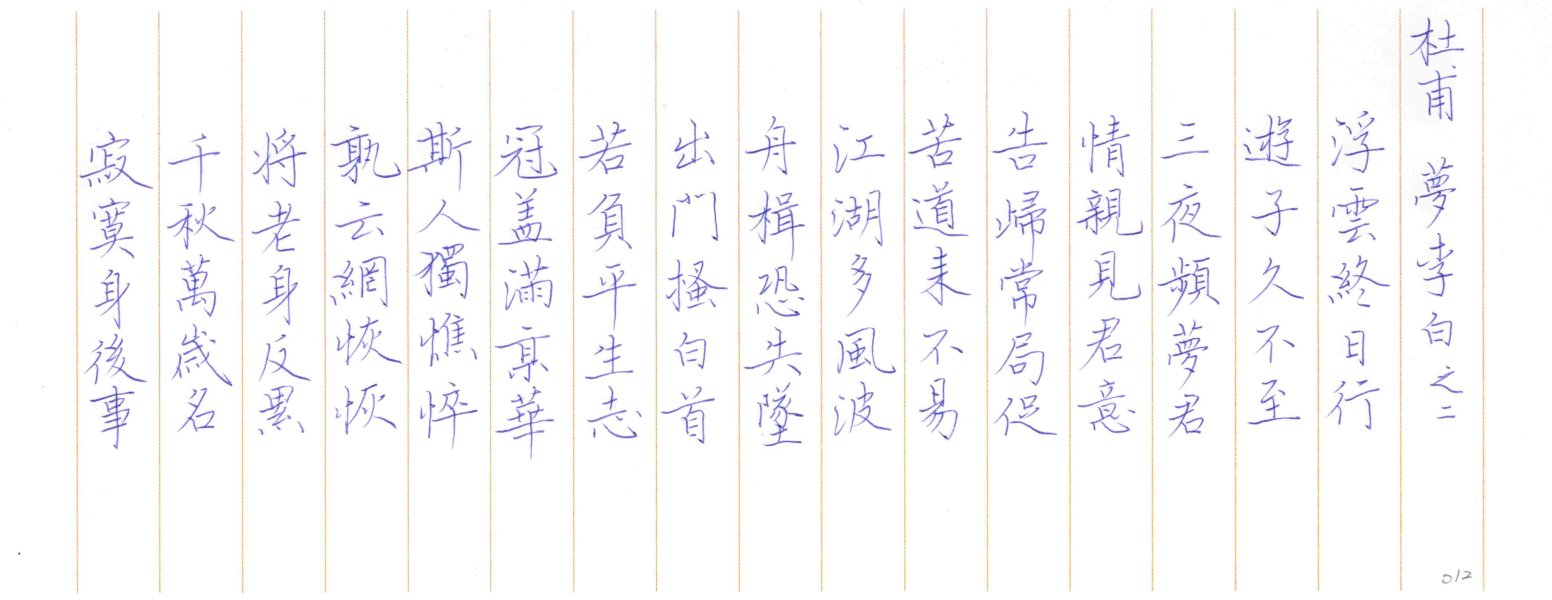 杜甫 夢李白之二
浮雲終日行
遊子久不至
三夜頻夢君
情親見君意
告歸常局促
苦道来不易
江湖多風波
舟楫恐失墜
出門搔白首
若負平生志
冠盖滿京華
斯人獨憔悴
孰云網恢恢
将老身反累
千秋萬歲名
寂寞身後事
012